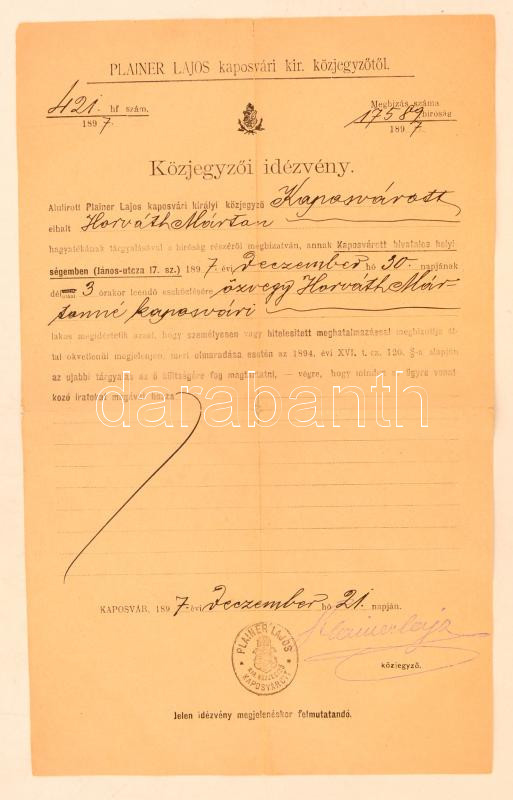 PLAINER LAJOS kaposvári kir. közjegyzőtől.
421. hf szám.
1897.
Megbizás száma
17589 biróság
1897.
Közjegyzői idézvény.
Alulirott Plainer Lajos kaposvári királyi közjegyző Kaposvárott
elhalt Horváth Márton
hagyatékának tárgyalásával a biróság részéről megbizatván, annak Kaposvárott hivatalos helyi
ségemben (János-utcza 17. sz.) 1897. évi Deczember hó 30. napjának
délutáni 3 órakor leendő eszközlésére özvegy Horváth Már-
tonné kaposvári
lakos megidértetik azzal, hogy személyesen vagy hitelesitett meghatalmazással megbizottja ál-
tal okvetlenül megjelenjen, mert elmaradása esetén az 1894. évi XVI. t. cz. 120. §-a alapján
az ujabbi tárgyalás az ő költségére fog magtartatni, — végre, hogy minden az ügyre vonat
kozó iratokat magával hozza
darabanth
KAPOSVÁR, 1897. évi Deczember hó 21. napján.
PLAINER LAJOS
KIR. KÖZJEGYZŐ
KAPOSVÁROTT
Plainer Lajos
közjegyző.
Jelen idézvény megjelenéskor felmutatandó.